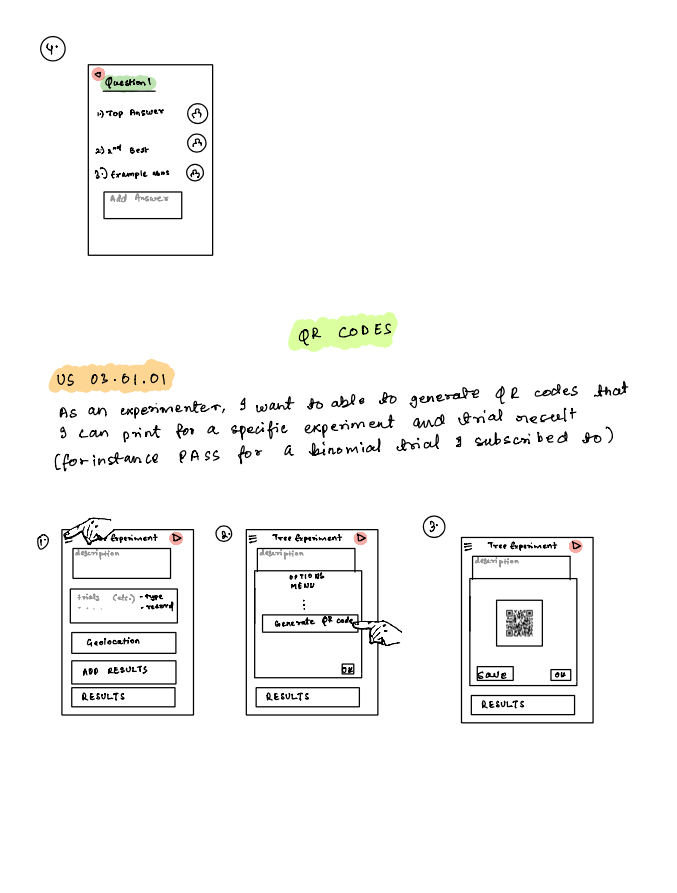 4.
Question 1
1.) Top Answer
2.) 2nd Best
3.) Example
Add Answer
QR CODES
US 03.01.01
As an experimenter, I want to able to generate QR codes that
I can print for a specific experiment and trial result
(for instance PASS for a binomial trial I subscribed to)
1.
Experiment
description
trials (etc.) - type
- record
Geolocation
ADD RESULTS
RESULTS
2.
Tree Experiment
description
OPTIONS
MENU
Generate QR code
OK
RESULTS
3.
Tree Experiment
description
Save
OK
RESULTS